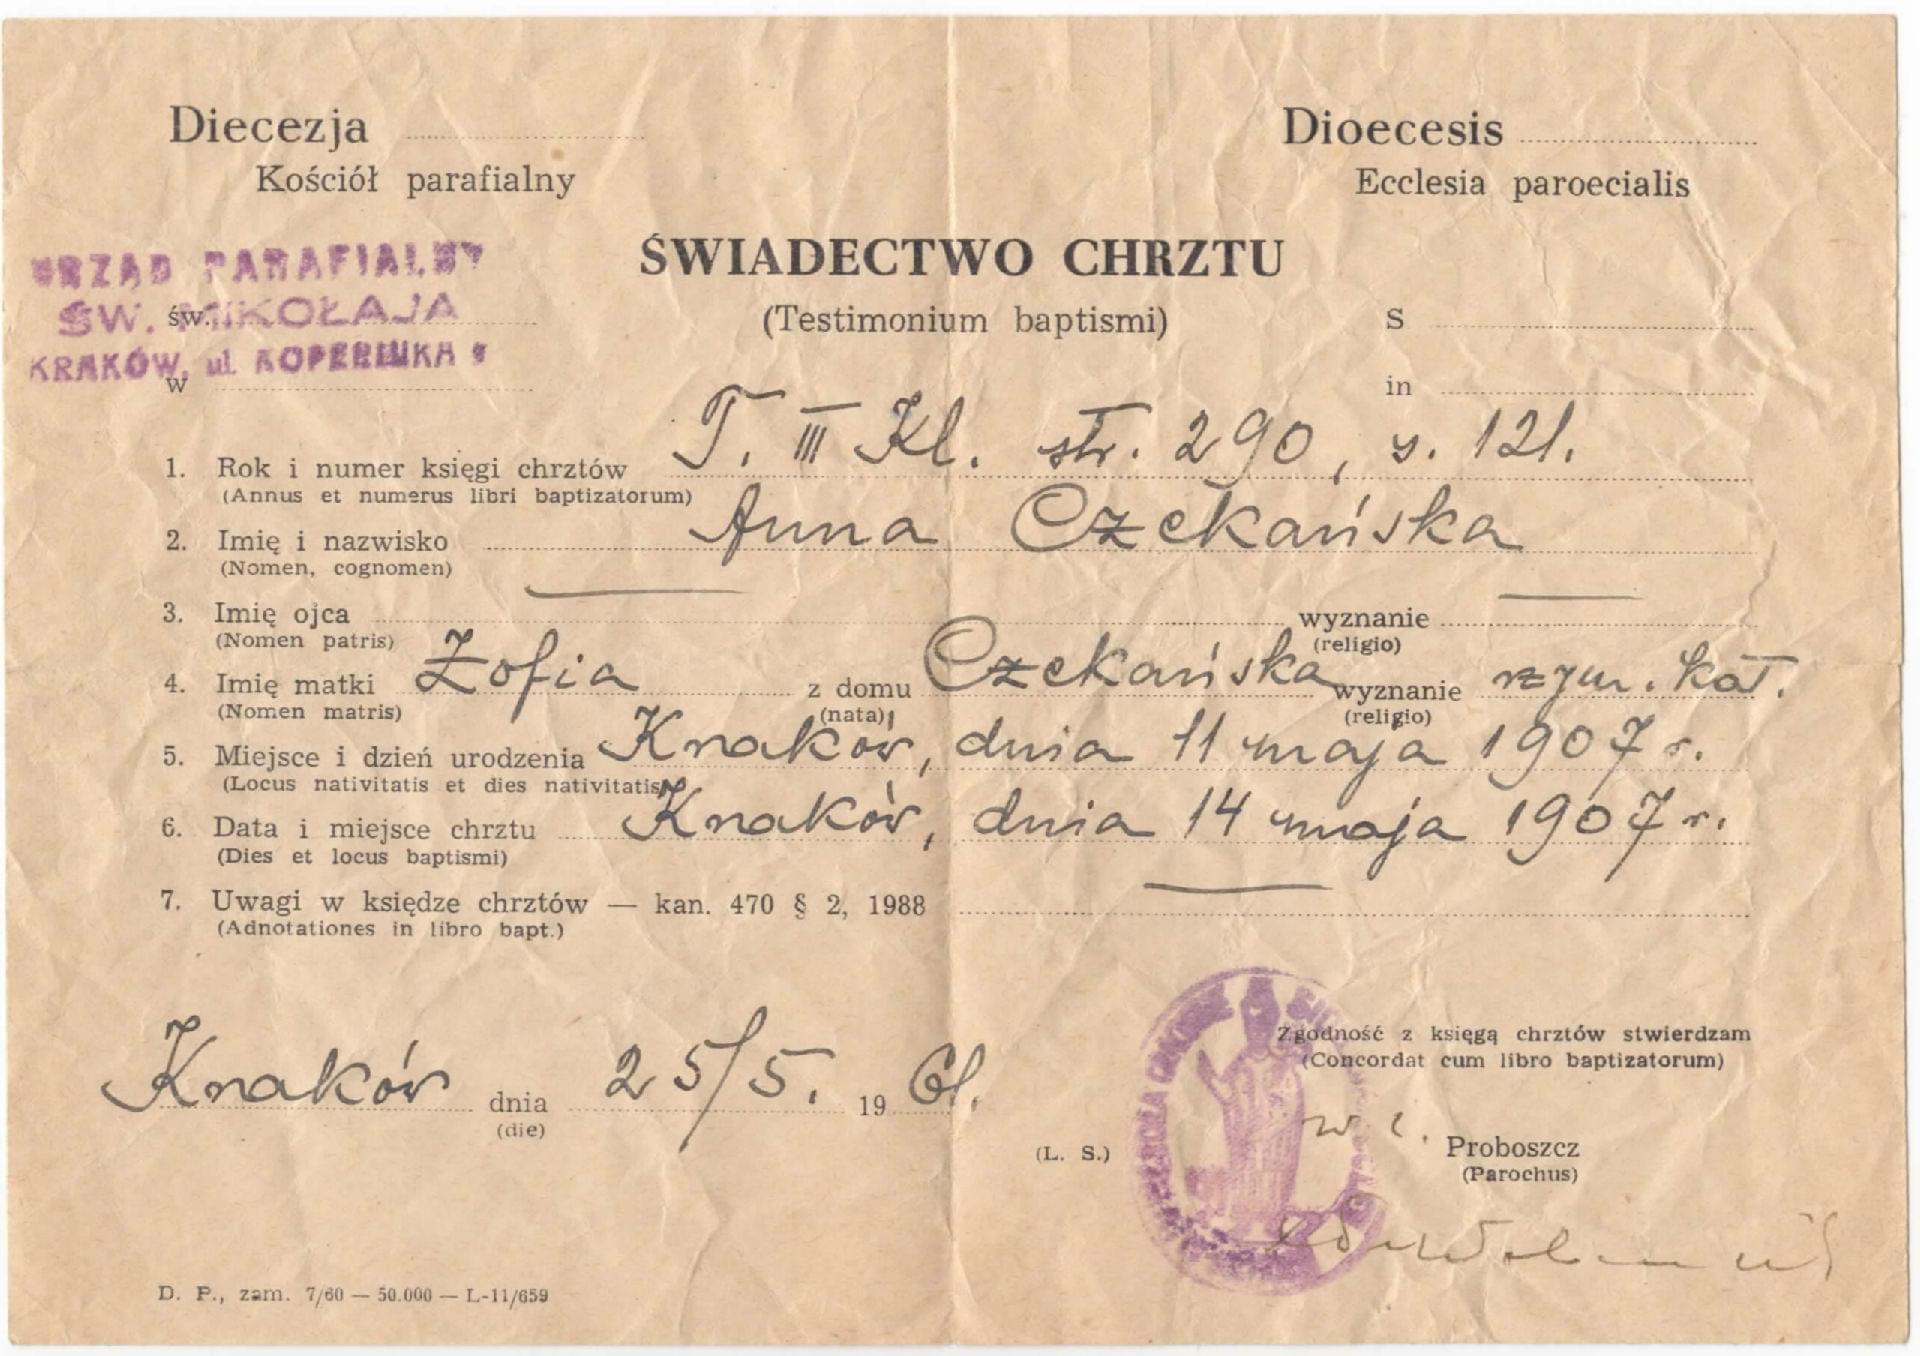 Diecezja
Kościół parafialny
Dioecesis
Ecclesia paroecialis
URZĄD PARAFIALNY
ŚW. MIKOŁAJA
KRAKÓW, ul. KOPERNIKA 9
św.
w
ŚWIADECTWO CHRZTU
(Testimonium baptismi)
S
in
1. Rok i numer księgi chrztów T. III Kl. str. 290, s. 121.
(Annus et numerus libri baptizatorum)
2. Imię i nazwisko Anna Czekańska
(Nomen, cognomen)
3. Imię ojca — wyznanie —
(Nomen patris) (religio)
4. Imię matki Zofia z domu Czekańska wyznanie rzym. kat.
(Nomen matris) (nata) (religio)
5. Miejsce i dzień urodzenia Kraków, dnia 11 maja 1907 r.
(Locus nativitatis et dies nativitatis)
6. Data i miejsce chrztu Kraków, dnia 14 maja 1907 r.
(Dies et locus baptismi)
7. Uwagi w księdze chrztów — kan. 470 § 2, 1988 —
(Adnotationes in libro bapt.)
Zgodność z księgą chrztów stwierdzam
(Concordat cum libro baptizatorum)
Kraków dnia 25/5. 1961.
(die)
(L. S.)
Proboszcz
(Parochus)
D. P., zam. 7/60 — 50.000 — L-11/659